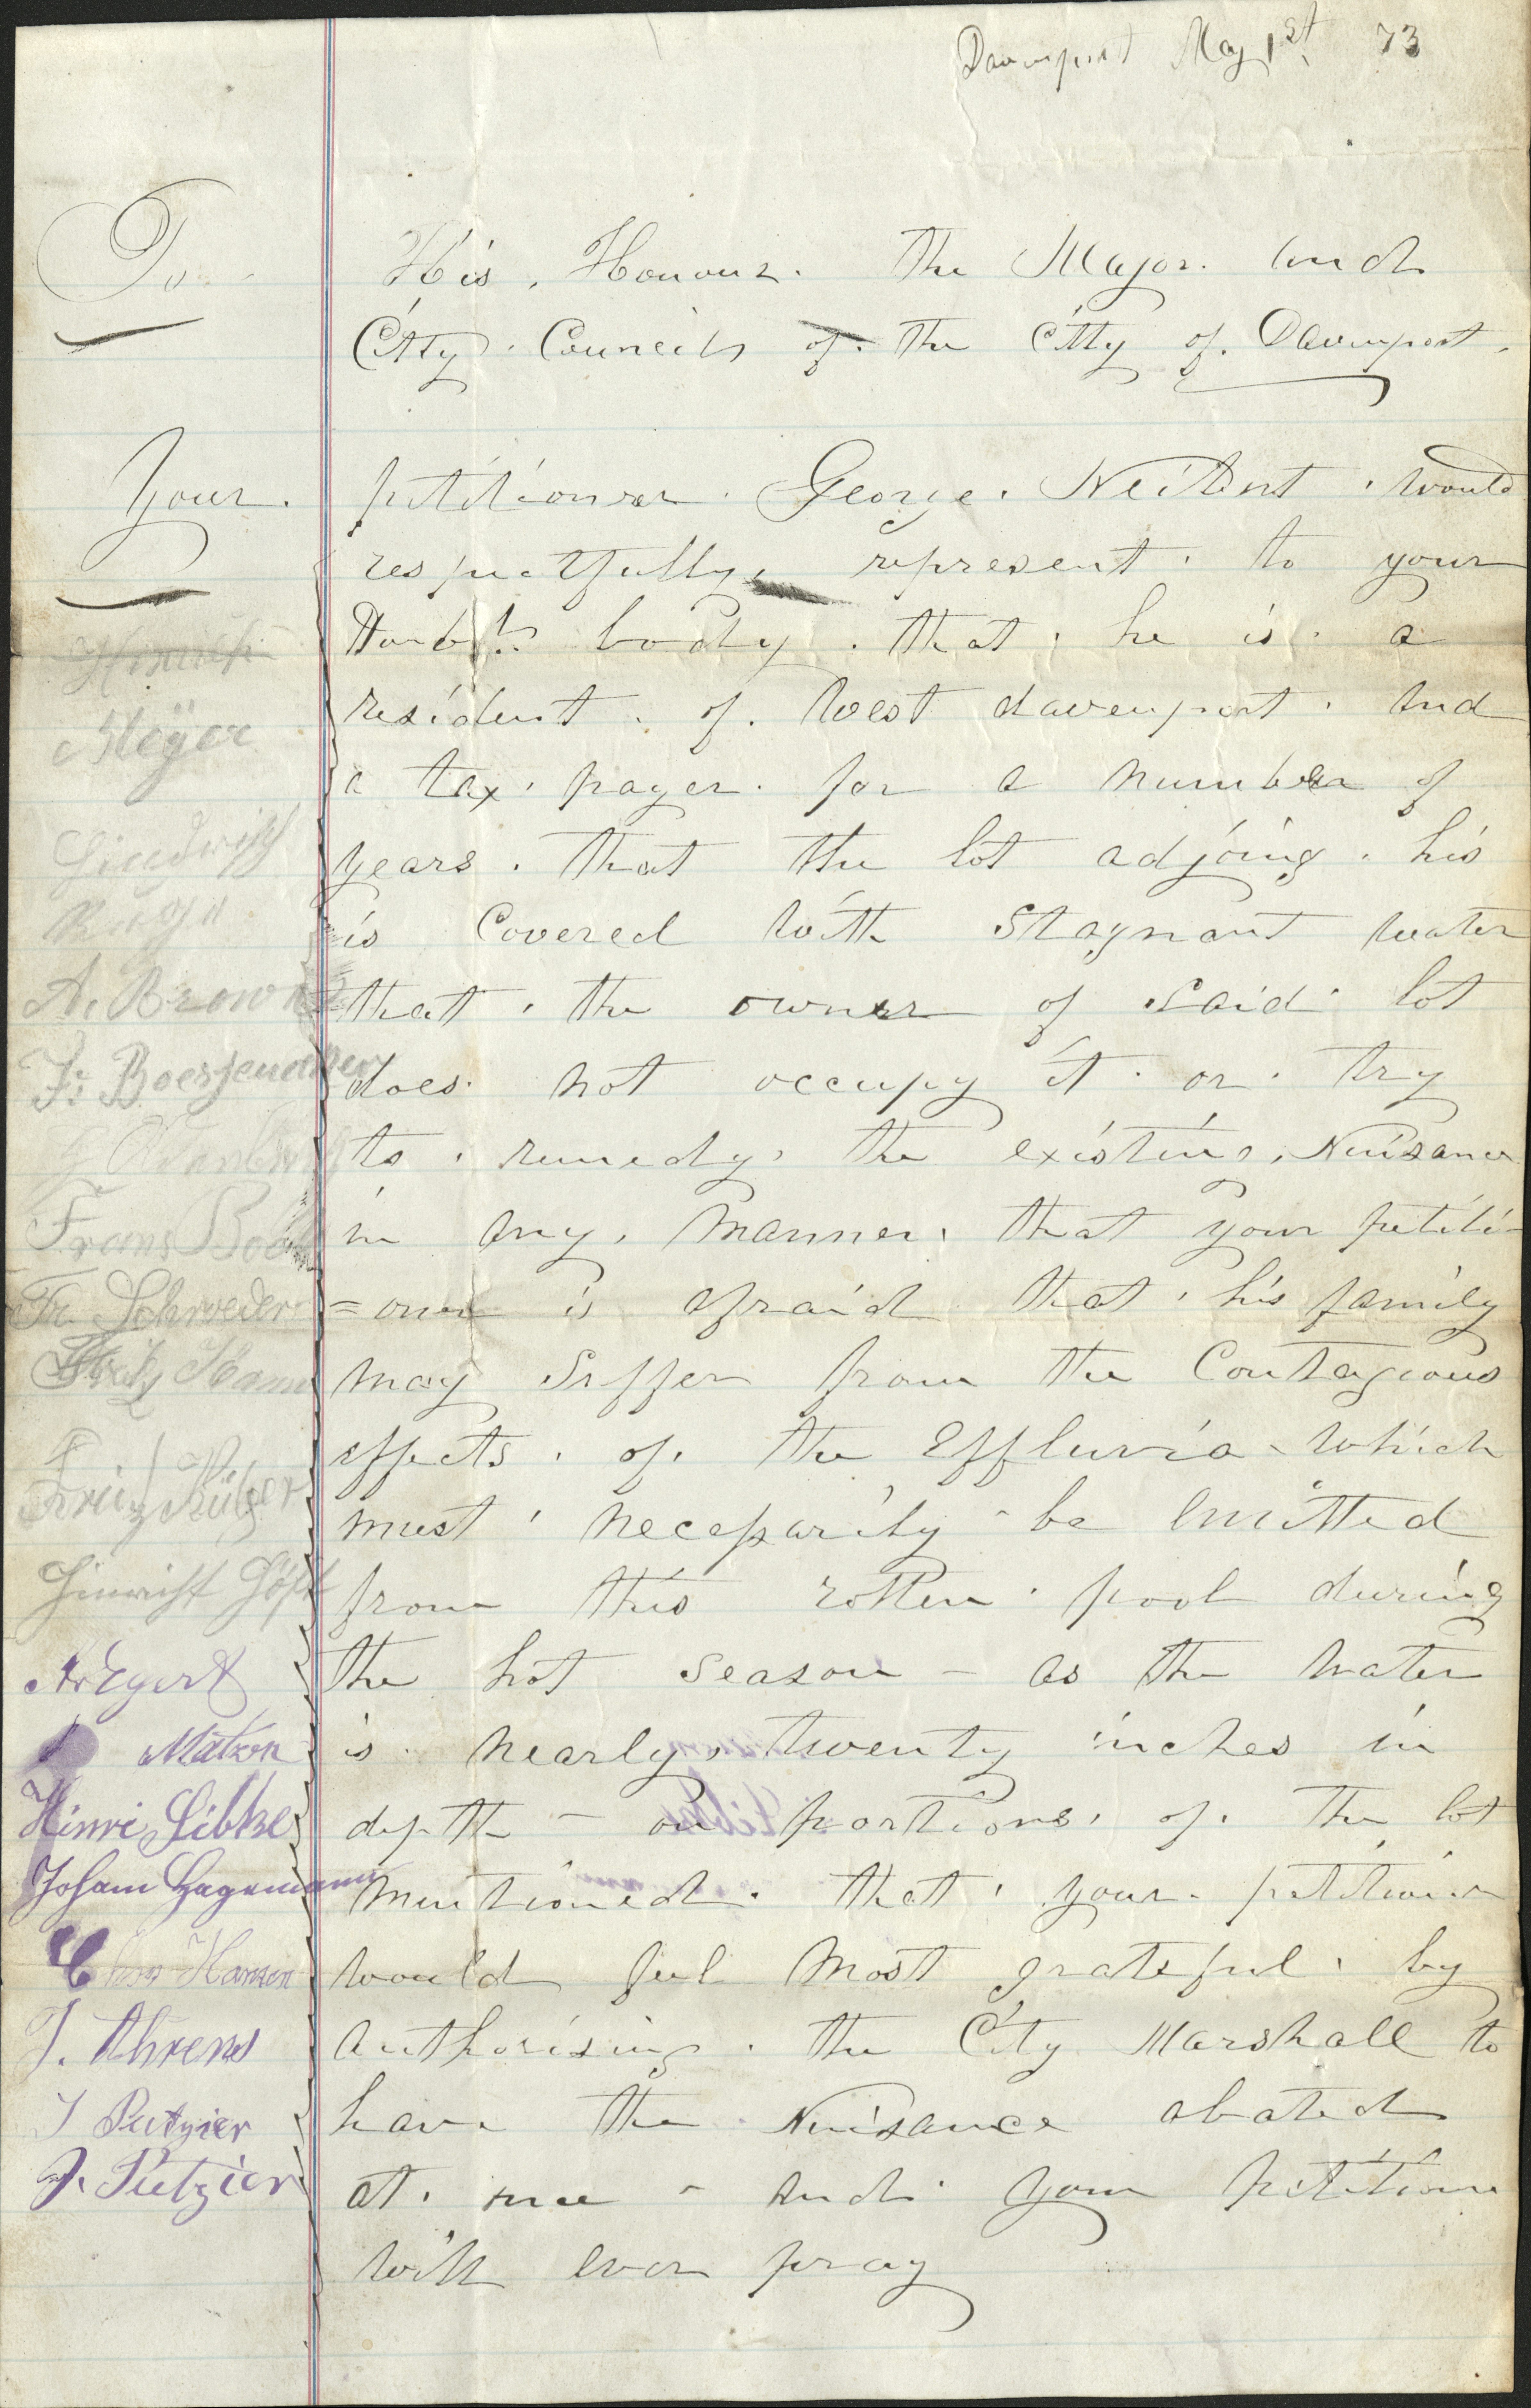 Davenport May 1st 73
To His Honour. the Major. and
City. Councils of. the City of. Davenport.
Your. petitioner. George. Neitent. would
respectfully, represent. to your
Honb'l body. that. he is. a
resident. of. West davenport. And
a tax. payer. for a number of
years. that the lot adjoing. his
is Covered With Stagnant water
that. the owner of said lot
does. not occupy it. or. try
to. remedy. the existing. Nuisance
in any. Manner. that your petiti-
=oner is afraid that. his family
may Suffer from the Contagious
effects. of. the Effluvia - which
must. necessarily - be Emitted
from this rotten. pool during
the hot season - as the water
is. nearly. twenty inches in
depth - on portions. of. the lot
mentioned. that. your. petitioner
would feel Most grateful. by
Authorising. the City Marshall to
have the. Nuisance abated
at. once - And. your petitioner
will ever pray
Hinrich
Meÿer
A. Brown
Frans
Fr. Schroeder
Fritz Hamm
Fritz Krüger
Hinrich Höft
Matzen
Hinri Libke
Johann Hagemann
Hansen
J. Ahrens
J Putzier
J. Putzier